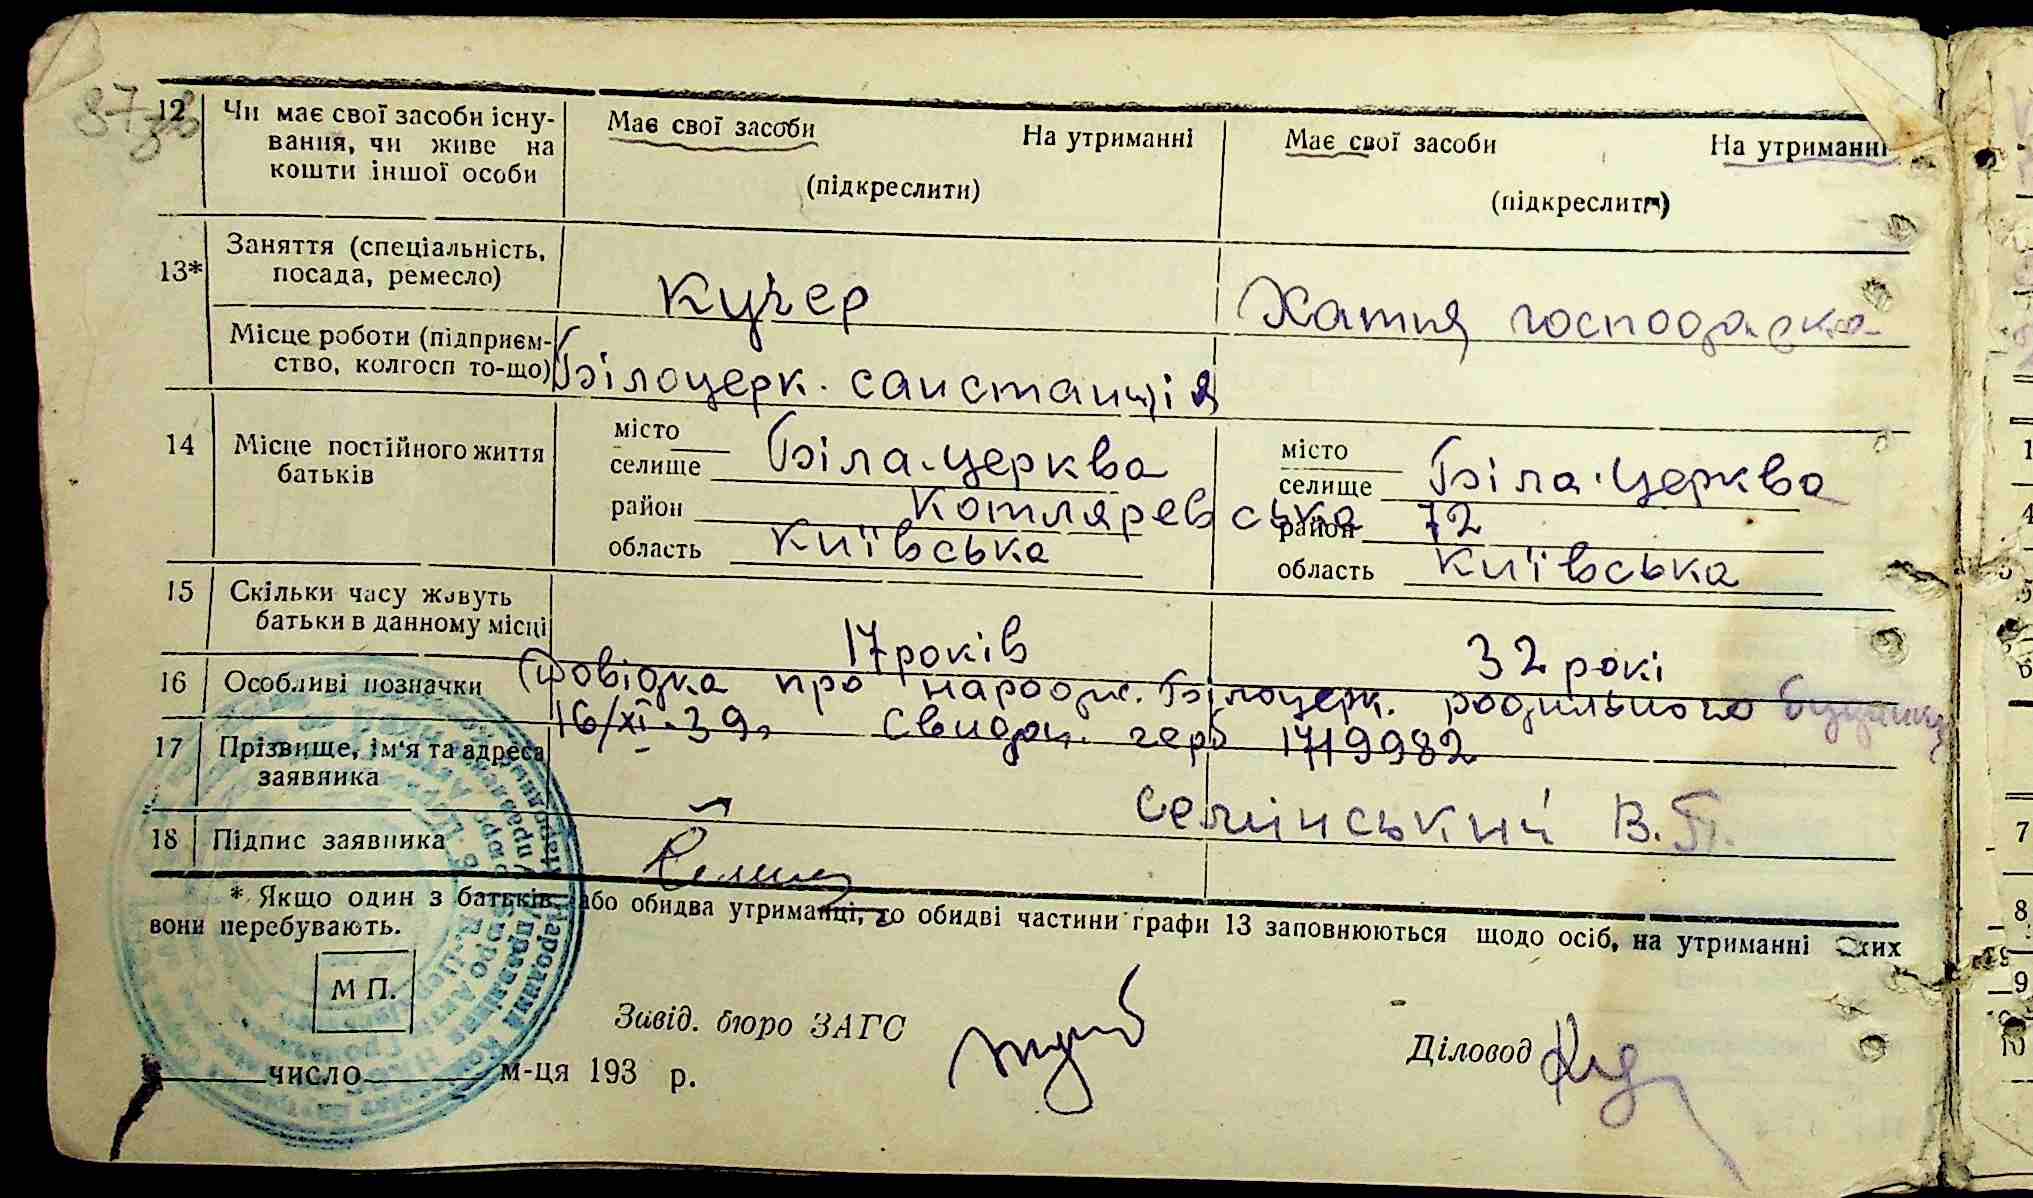 87зв
12 Чи має свої засоби існу- Має свої засоби На утриманні Має свої засоби На утриманні
вання, чи живе на
кошти іншої особи (підкреслити) (підкреслити)
13* Заняття (спеціальність,
посада, ремесло) Кучер Хатня господарка
Місце роботи (підприєм-
ство, колгосп то-що) Білоцерк. санстанція
14 Місце постійного життя
батьків
місто місто
селище Біла-церква селище Біла-церква
район Котляревська район 72
область Київська область Київська
15 Скільки часу живуть
батьки в данному місці 17 років 32 рокі
16 Особливі позначки Довідка про народж. Білоцерк. родильного будинку
16/XI-39р Свидоц. герб 1719982
17 Прізвище, ім'я та адреса
заявника Семінський В.П.
18 Підпис заявника
* Якщо один з батьків або обидва утриманці, то обидві частини графи 13 заповнюються щодо осіб, на утриманні яких
вони перебувають.
М П.
Завід. бюро ЗАГС
Діловод
число м-ця 193 р.